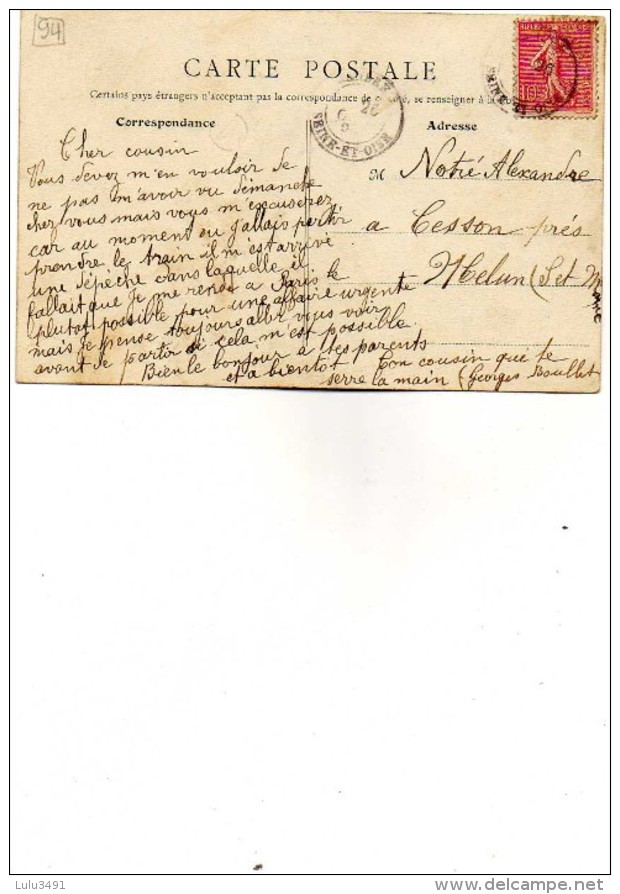 94
CARTE POSTALE
Certains pays étrangers n'acceptant pas la correspondance de se renseigner à la
Correspondance
Adresse
SEINE-ET-OISE
Cher cousin
Vous devez m'en vouloir de
ne pas m'avoir vu dimanche
chez vous mais vous m'excuserez
car au moment ou j'allais partir
prendre le train il m'est arrivé
une dépèche dans laquelle il
fallait que je me rende a Paris le
plutot possible pour une affaire urgente
mais je pense toujours aller vous voir
avant de partir si cela m'est possible.
Bien le bonjour a tes parents
et a bientot Ton cousin qui te
serre la main (Georges Boullet
M Notré Alexandre
a Cesson prés
Melun (S et Marne
10
Lulu3491
www.delcampe.net